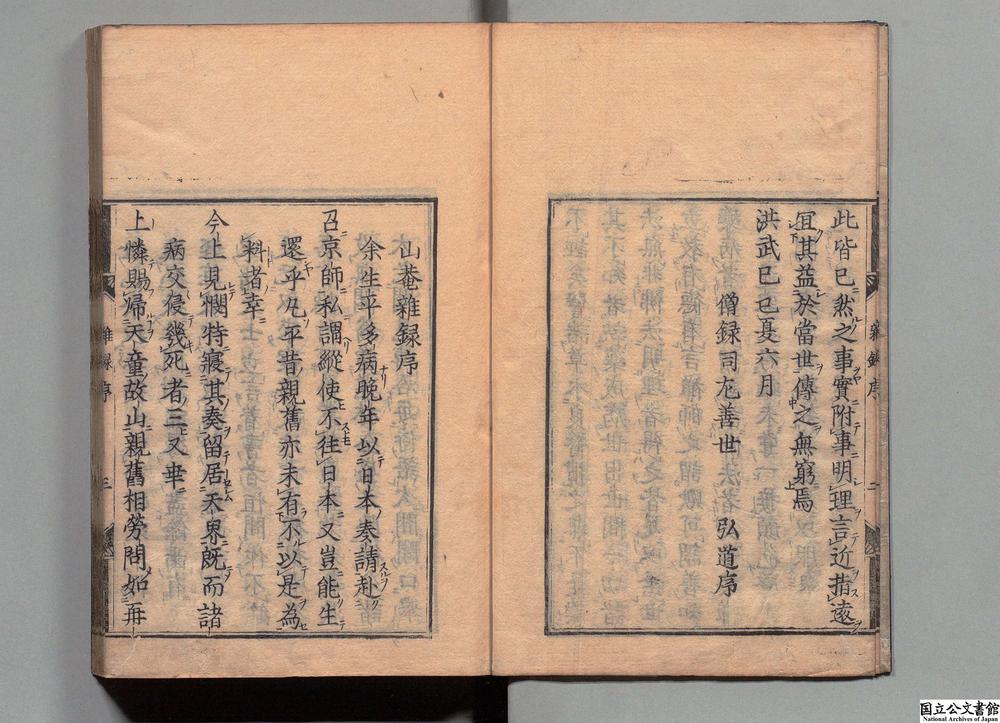 此皆已然之事實附事明理言近指遠
宜其益於當世傳之無窮焉
洪武己巳夏六月
僧録司左善世　弘道序
雜録序
二
山菴雜録序
余生平多病晚年以日本奏請赴
召京師私謂縱使不往日本又豈能生
還乎凡平昔親舊亦未有不以是為
料者幸
今上見憫特寢其奏留居天界既而諸
病交侵幾死者三又幸
上憐賜歸天童故山親舊相勞問如再
雜録序
三
国立公文書館
National Archives of Japan